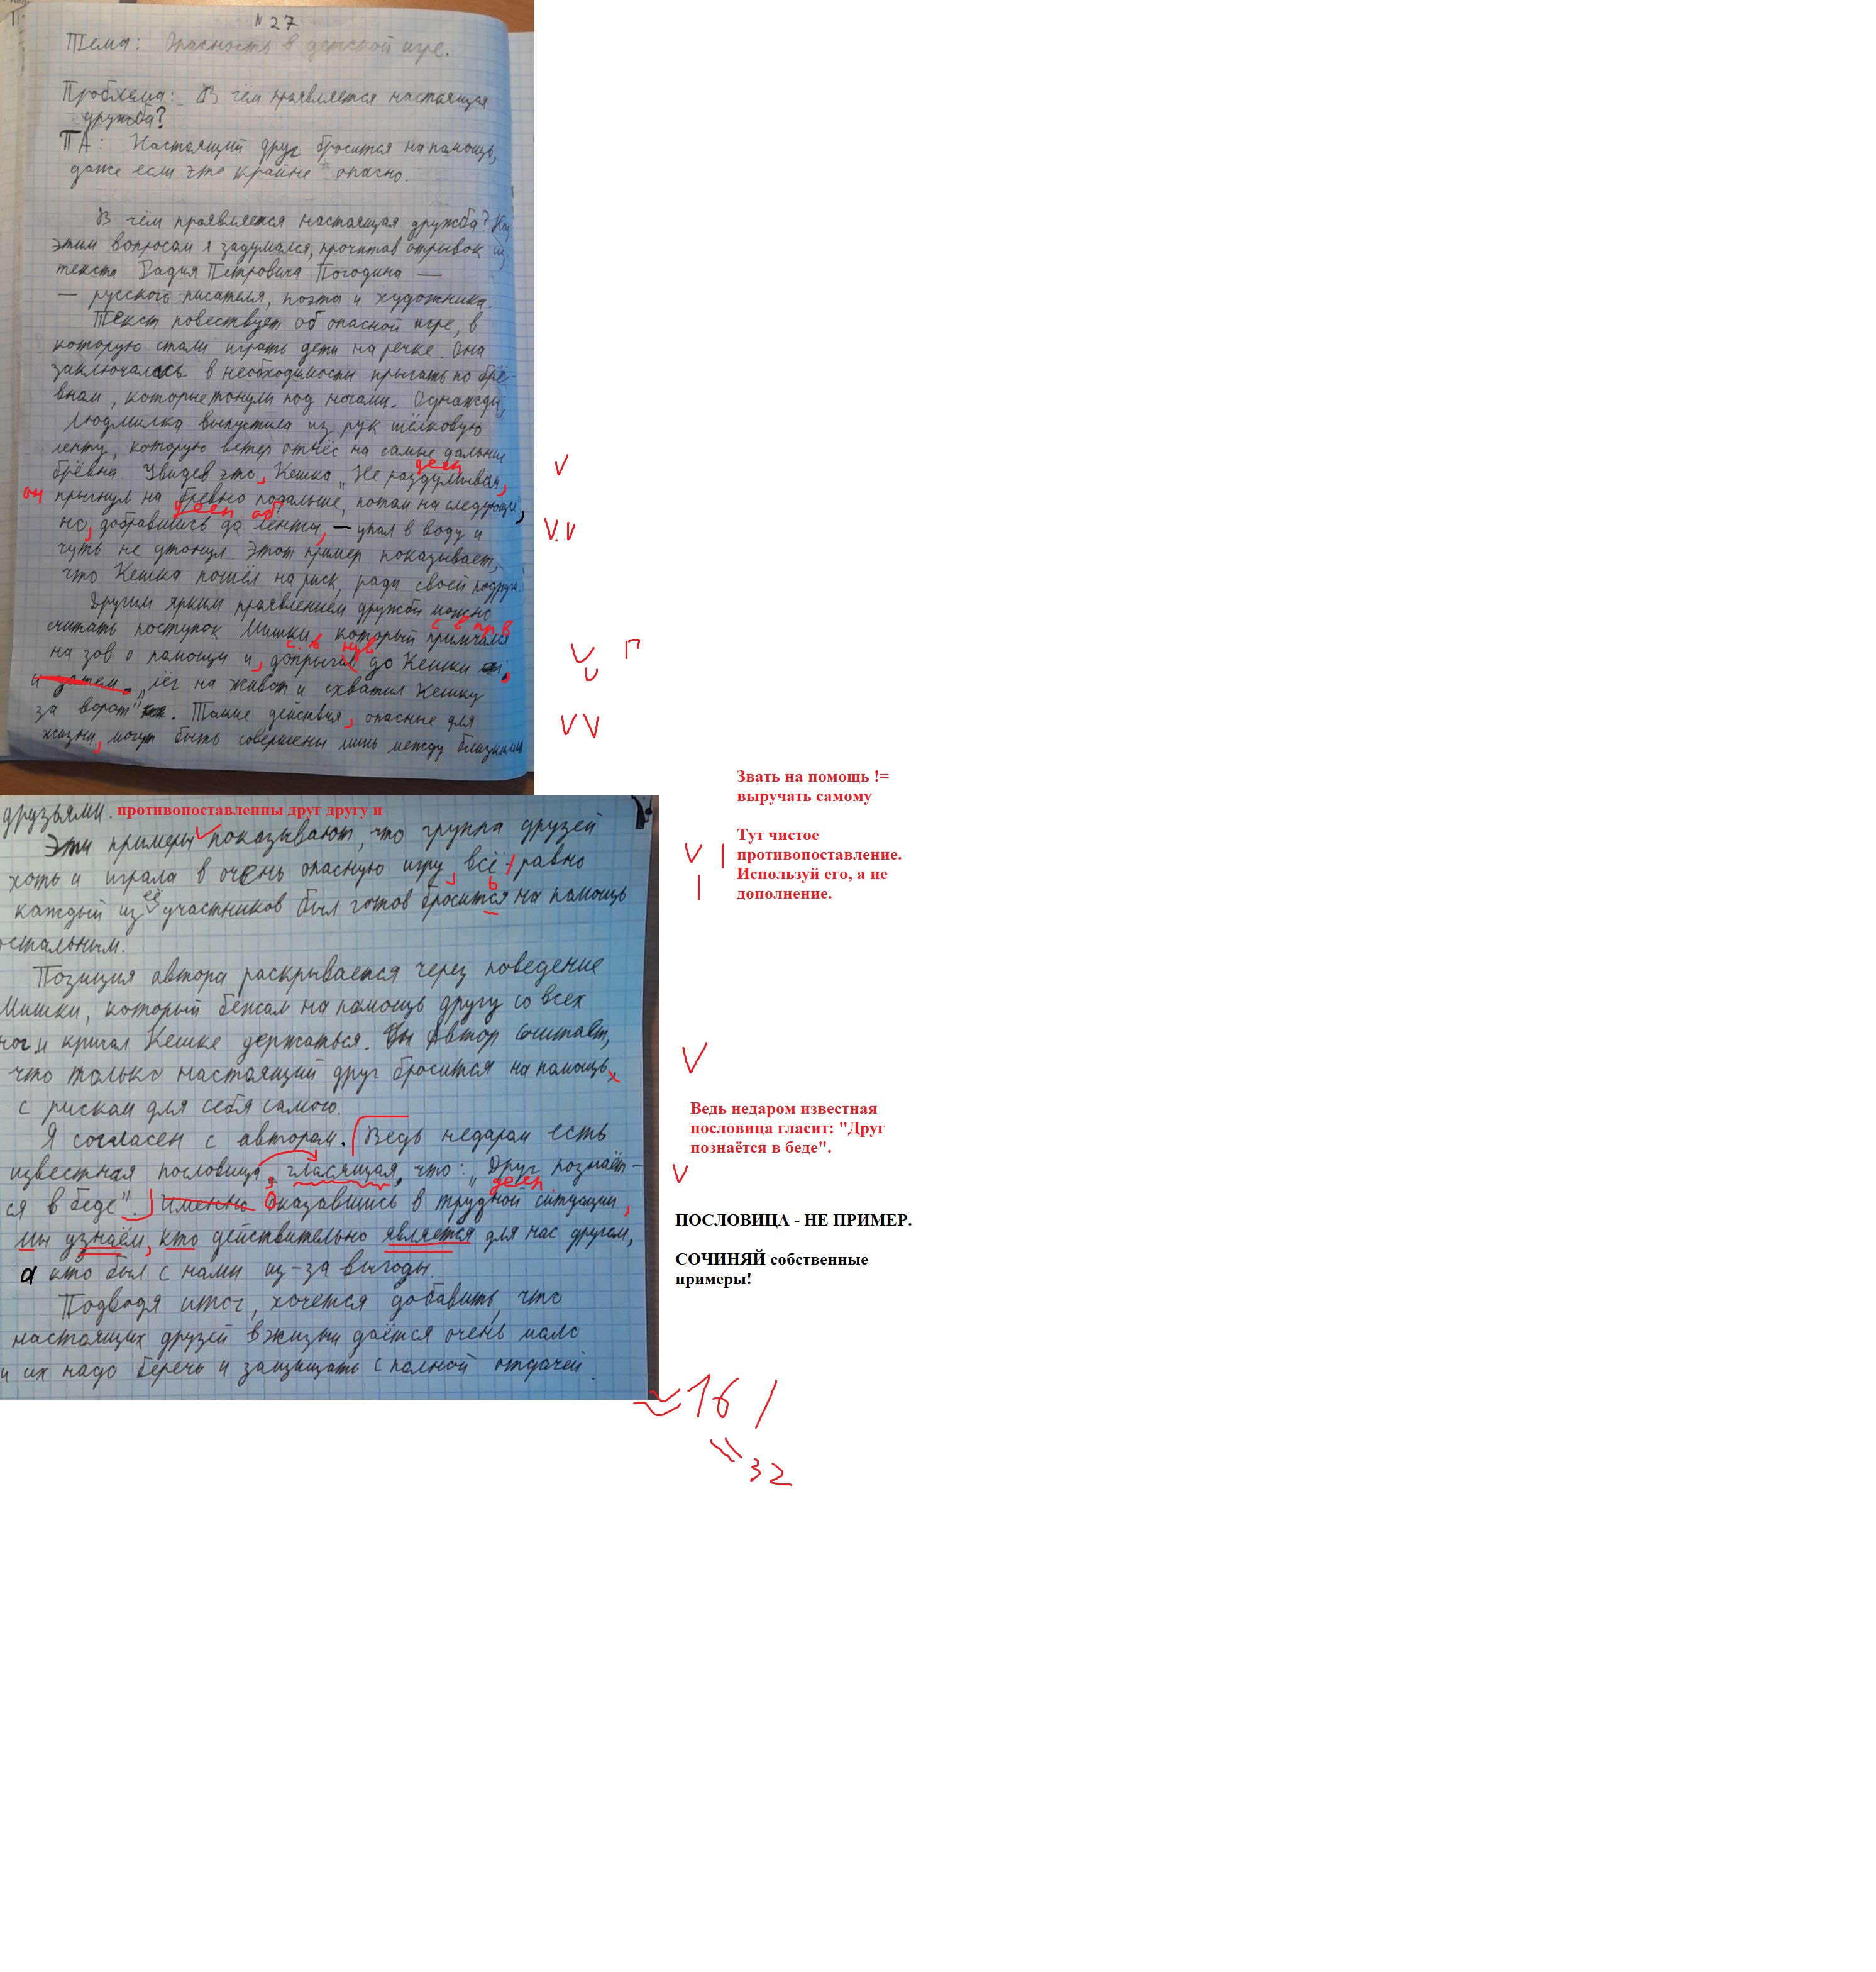 № 27
Тема: Опасность в детской игре.
Проблема: В чём проявляется настоящая
дружба?
ПА: Настоящий друг бросится на помощь,
даже если это крайне опасно.
В чём проявляется настоящая дружба?
этим вопросом я задумался, прочитав отрывок из
текста Радия Петровича Погодина —
— русского писателя, поэта и художника.
Текст повествует об опасной игре, в
которую стали играть дети на речке. Она
заключалась в необходимости прыгать по брё-
внам, которые тонули под ногами. Однажды,
Людмилка выпустила из рук шёлковую
ленту, которую ветер отнёс на самые дальние
дееп
брёвна. Увидев это, Кешка „Не раздумывая,
он прыгнул на бревно подальше, потом на следующее,
дееп об
но, добравшись до ленты, — упал в воду и
чуть не утонул. Этот пример показывает,
что Кешка пошёл на риск, ради своей подруги.
Другим ярким проявлением дружбы можно
с в пр в
считать поступок Мишки, который примчался
с. в
на зов о помощи и, допрыгав до Кешки,
и затем „лёг на живот и схватил Кешку
за ворот". Такие действия, опасные для
жизни, могут быть совершены лишь между близкими
Звать на помощь !=
выручать самому
друзьями. противопоставленны друг другу и
Эти примеры показывают, что группа друзей
хоть и играла в очень опасную игру, всё равно
её
каждый из участников был готов бросится на помощь
ь
остальным.
Тут чистое
противопоставление.
Используй его, а не
дополнение.
Позиция автора раскрывается через поведение
Мишки, который бежал на помощь другу со всех
ног и кричал Кешке держаться. Автор считает,
что только настоящий друг бросится на помощь
с риском для себя самого.
Я согласен с автором. Ведь недаром есть
известная пословица, гласящая, что: „Друг познаёт-
дееп
ся в беде". Именно Оказавшись в трудной ситуации,
мы узнаём, кто действительно является для нас другом,
а кто был с нами из-за выгоды.
Ведь недаром известная
пословица гласит: "Друг
познаётся в беде".
ПОСЛОВИЦА - НЕ ПРИМЕР.
СОЧИНЯЙ собственные
примеры!
Подводя итог, хочется добавить, что
настоящих друзей в жизни даётся очень мало
и их надо беречь и защищать с полной отдачей.
≈16 /
32